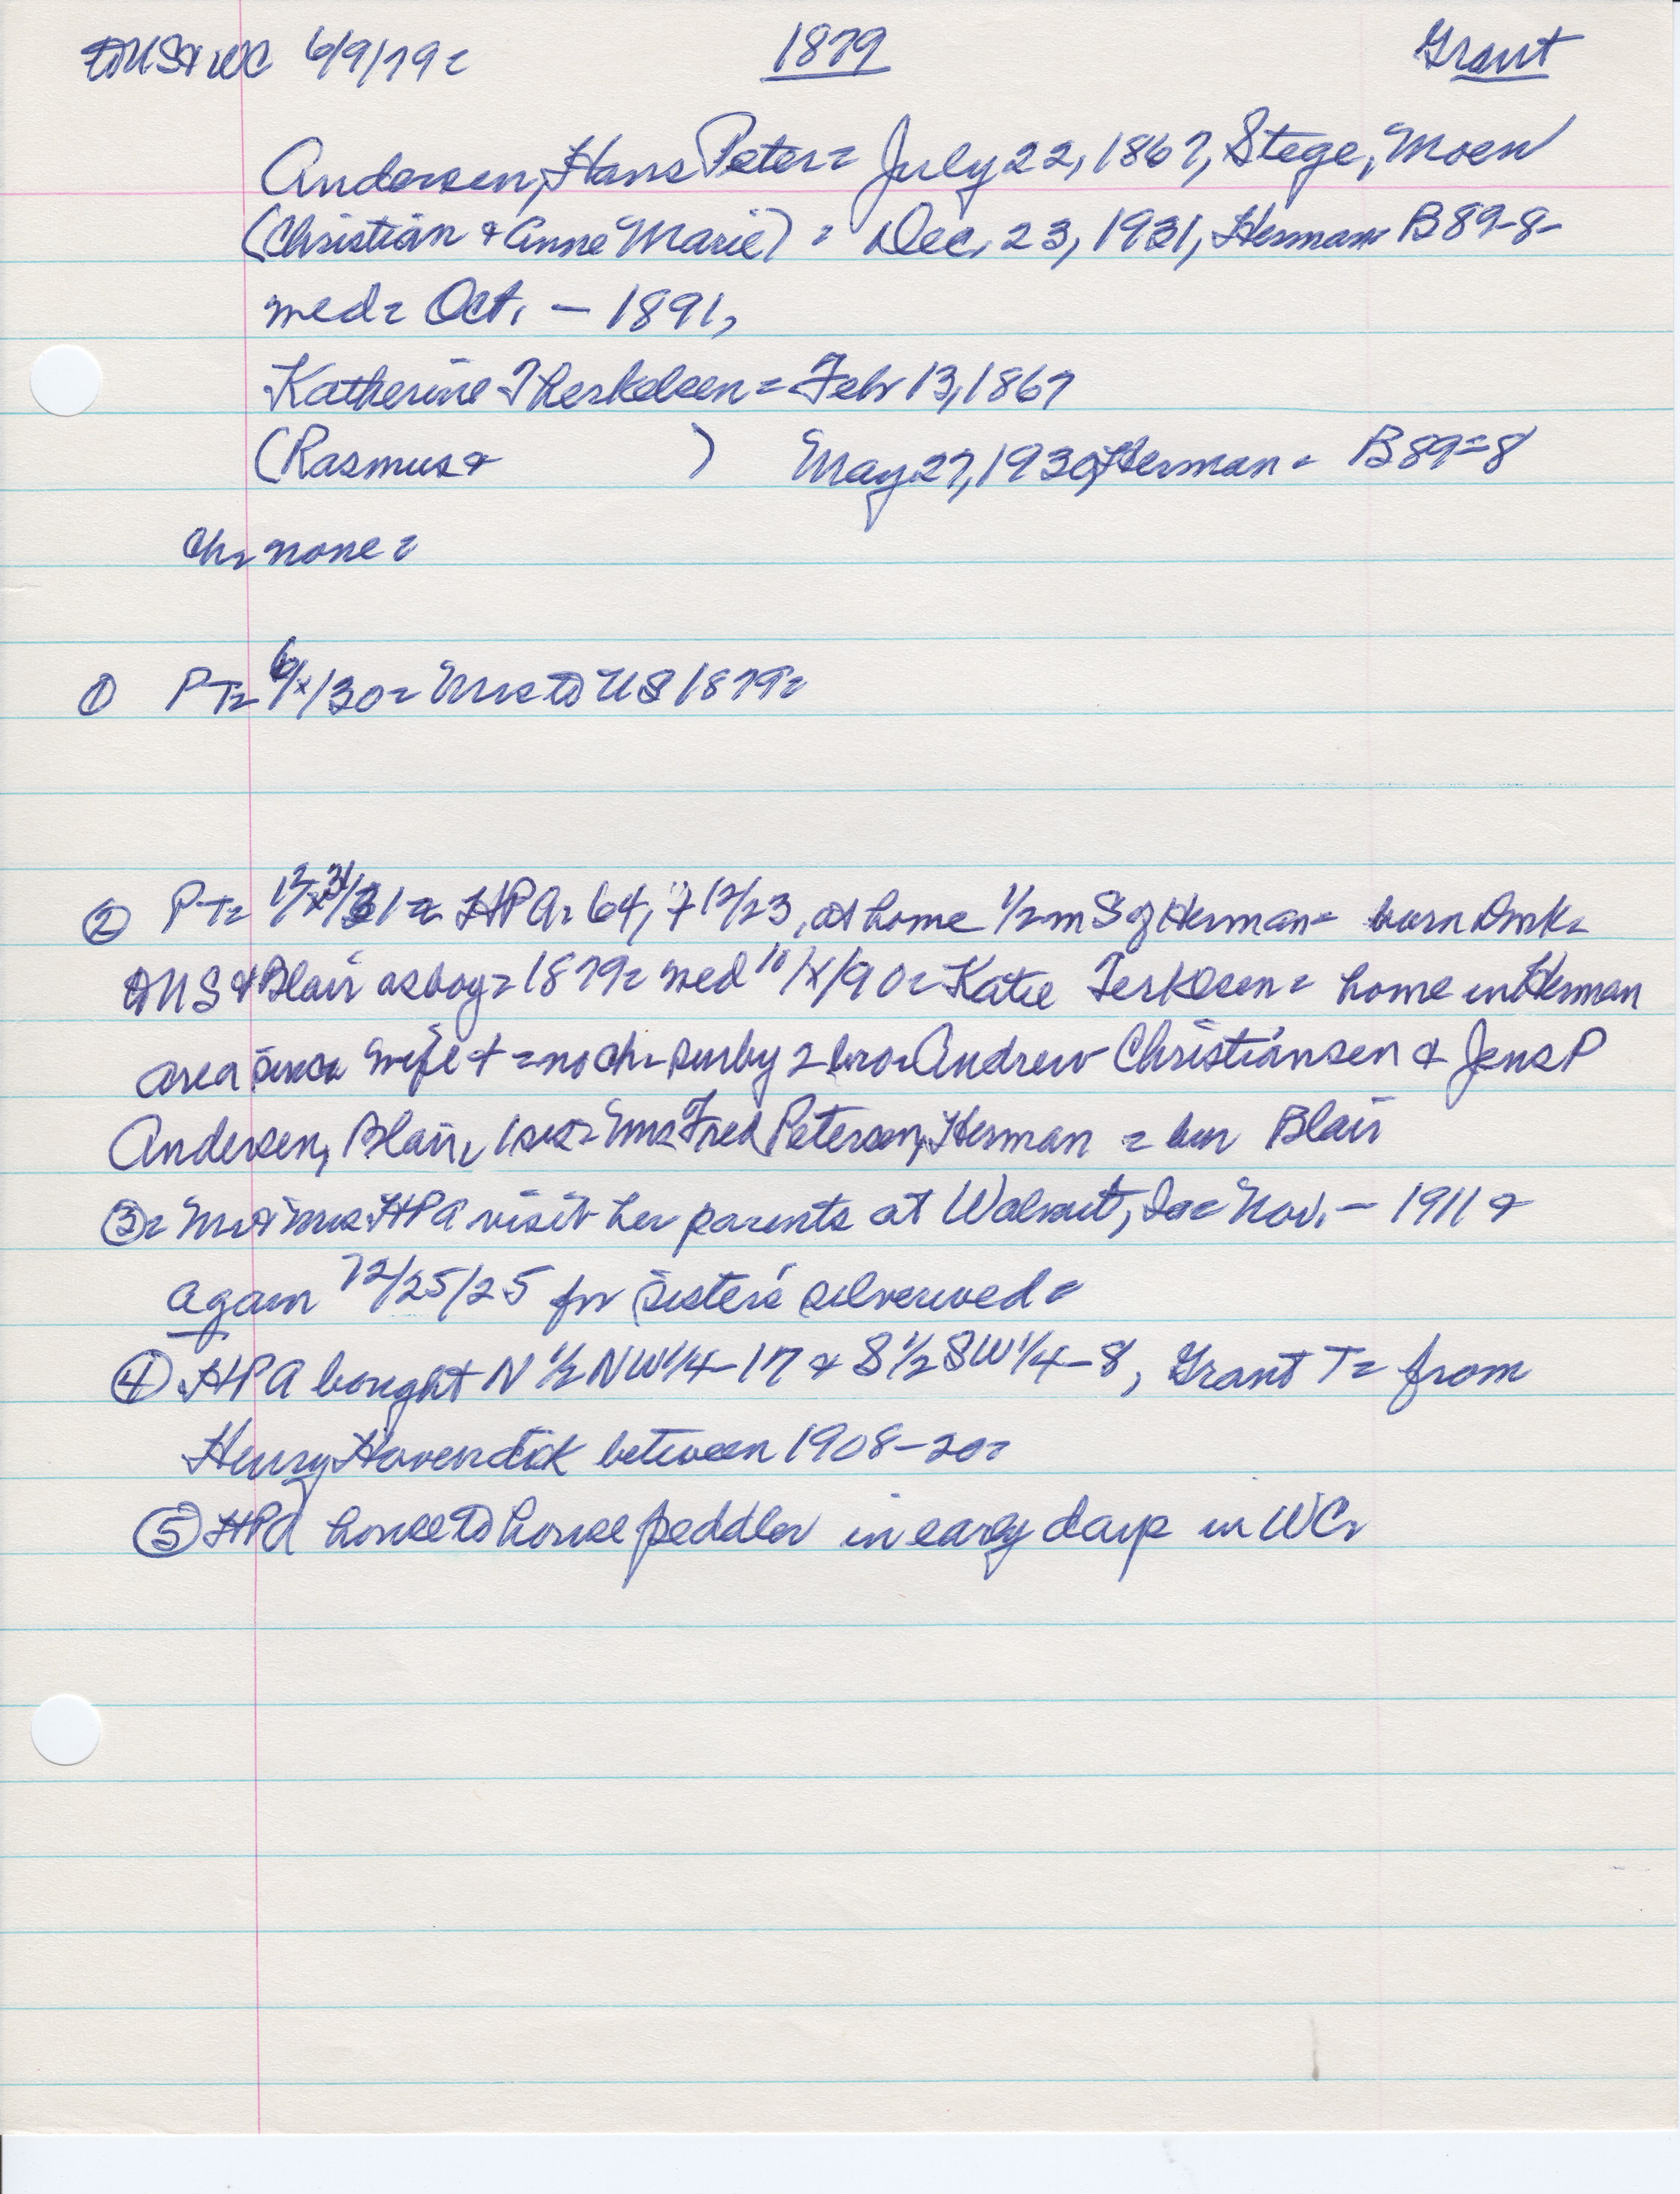 US & WC 6/9/79 = 1879 Grant
Andersen, Hans Peter = July 22, 1867, Stege, Moen
(Christian & Anne Marie) = Dec. 23, 1931, Herman B 89-8-
med = Oct. - 1891,
Katherine Therkelsen = Febr 13, 1867
(Rasmus & ) May 27, 1930, Herman = B 89=8
Ch = none =
① PT = 6/x/30 = Mrs to US 1879 =
② PT = 12/31/31 = HPA = 64, + 12/23, at home 1/2 m S of Herman = born Dmk =
US & Blair as boy = 1879 = med 10/x/90 = Katie Terklsen = home in Herman
area since wife + = no ch = surby 2 bro = Andrew Christiansen & Jens P
Andersen, Blair, 1 sis = Mrs Fred Petersen, Herman = bur Blair
③ = Mr & Mrs HPA visit her parents at Walnut, Ia = Nov. - 1911 &
again 12/25/25 for sister's silverwed =
④ HPA bought N 1/2 NW 1/4 - 17 & S 1/2 SW 1/4 - 8, Grant T = from
Henry between 1908-20 =
⑤ HPA house to house peddler in early days in WC =